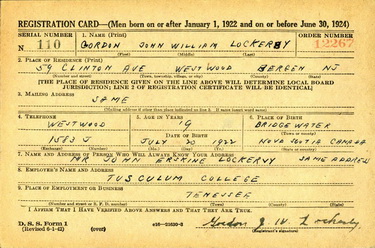 REGISTRATION CARD—(Men born on or after January 1, 1922 and on or before June 30, 1924)
SERIAL NUMBER 1. NAME (Print) ORDER NUMBER
N 110 GORDON JOHN WILLIAM LOCKERBY 12267
(First) (Middle) (Last)
2. PLACE OF RESIDENCE (Print)
59 CLINTON AVE WESTWOOD BERGEN NJ
(Number and street) (Town, township, village, or city) (County) (State)
[THE PLACE OF RESIDENCE GIVEN ON THE LINE ABOVE WILL DETERMINE LOCAL BOARD
JURISDICTION; LINE 2 OF REGISTRATION CERTIFICATE WILL BE IDENTICAL]
3. MAILING ADDRESS
SAME
[Mailing address if other than place indicated on line 2. If same insert word same]
4. TELEPHONE 5. AGE IN YEARS 6. PLACE OF BIRTH
WESTWOOD 19 BRIDGEWATER
DATE OF BIRTH
1583 J JULY 20 1922 NOVA SCOTIA CANADA
(Exchange) (Number) (Mo.) (Day) (Yr.) (State or country)
7. NAME AND ADDRESS OF PERSON WHO WILL ALWAYS KNOW YOUR ADDRESS
MR JOHN ERSKINE LOCKERBY SAME ADDRESS
8. EMPLOYER'S NAME AND ADDRESS
TUSCULUM COLLEGE
9. PLACE OF EMPLOYMENT OR BUSINESS
TENESSEE
(Number and street or R. F. D. number) (Town) (County) (State)
I AFFIRM THAT I HAVE VERIFIED ABOVE ANSWERS AND THAT THEY ARE TRUE.
D. S. S. Form 1
(Revised 6-1-42) (over) Gordon J. W. Lockerby
(Registrant's signature)